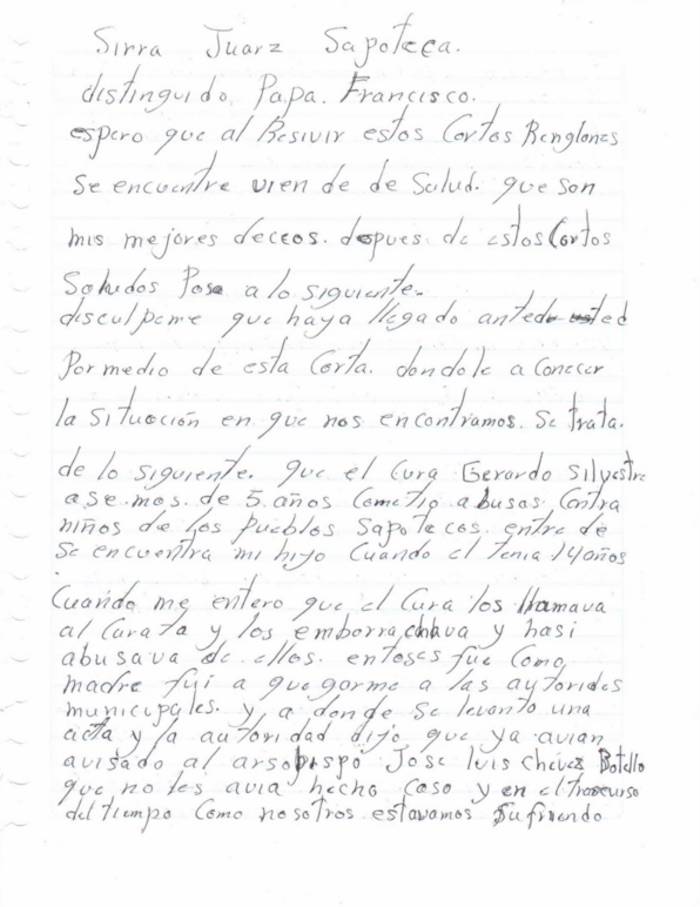 Sirra Juarz Sapoteca.
distinguido Papa. Francisco.
espero que al Resivir estos Cortos Renglones
Se encuentre vien de de Salud. que son
mis mejores deceos. depues de estos Cortos
Saludos Paso a lo siguiente.
disculpeme que haya llegado ante usted
Por medio de esta Carta. dondole a Conecer
la Situación en que nos encontramos. Se trata.
de lo siguiente. que el Cura Gerardo Silvestre
ase mos. de 5 años Cometio abusos Contra
niños de los Pueblos Sapotecos. entre de
Se encuentra mi hijo Cuando el tenia 14 años
Cuando me entero que el Cura los llamava
al Curata y los emborrachava y hasi
abusava de ellos. entoses fue Como
madre fui a quegarme a las autorides
municipales. y a donde se levanto una
acta y la autoridad dijo que ya avian
avisado al arsobispo Jose luis Chavez Botello
que no les avia hecho Caso y en el trascurso
del tiempo Como nosotros estavamos Sufriendo